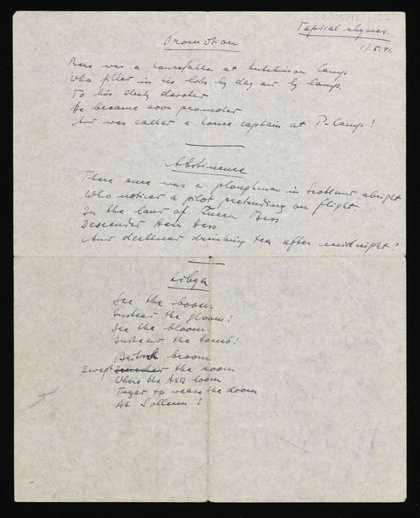 Topical rhymes.
17.5.41.
Promotion
was a housefather at Hutchinson Camp
Who filled in his lists by day and by lamp.
To his duty devoted
He became soon promoted
And was called a house captain at P-Camp!
Abstinence
There once was a ploughman in Scotland alright
Who noticed a pilot pretending on flight
In the land of Queen Bess
Descended Herr Hess
And declined drinking tea after midnight!
Libya
See the boom
Instead the gloom!
See the bloom
Instead the bomb!
British broom
Swept the room
Where the Axis loom
to weave the doom
At Sollum!